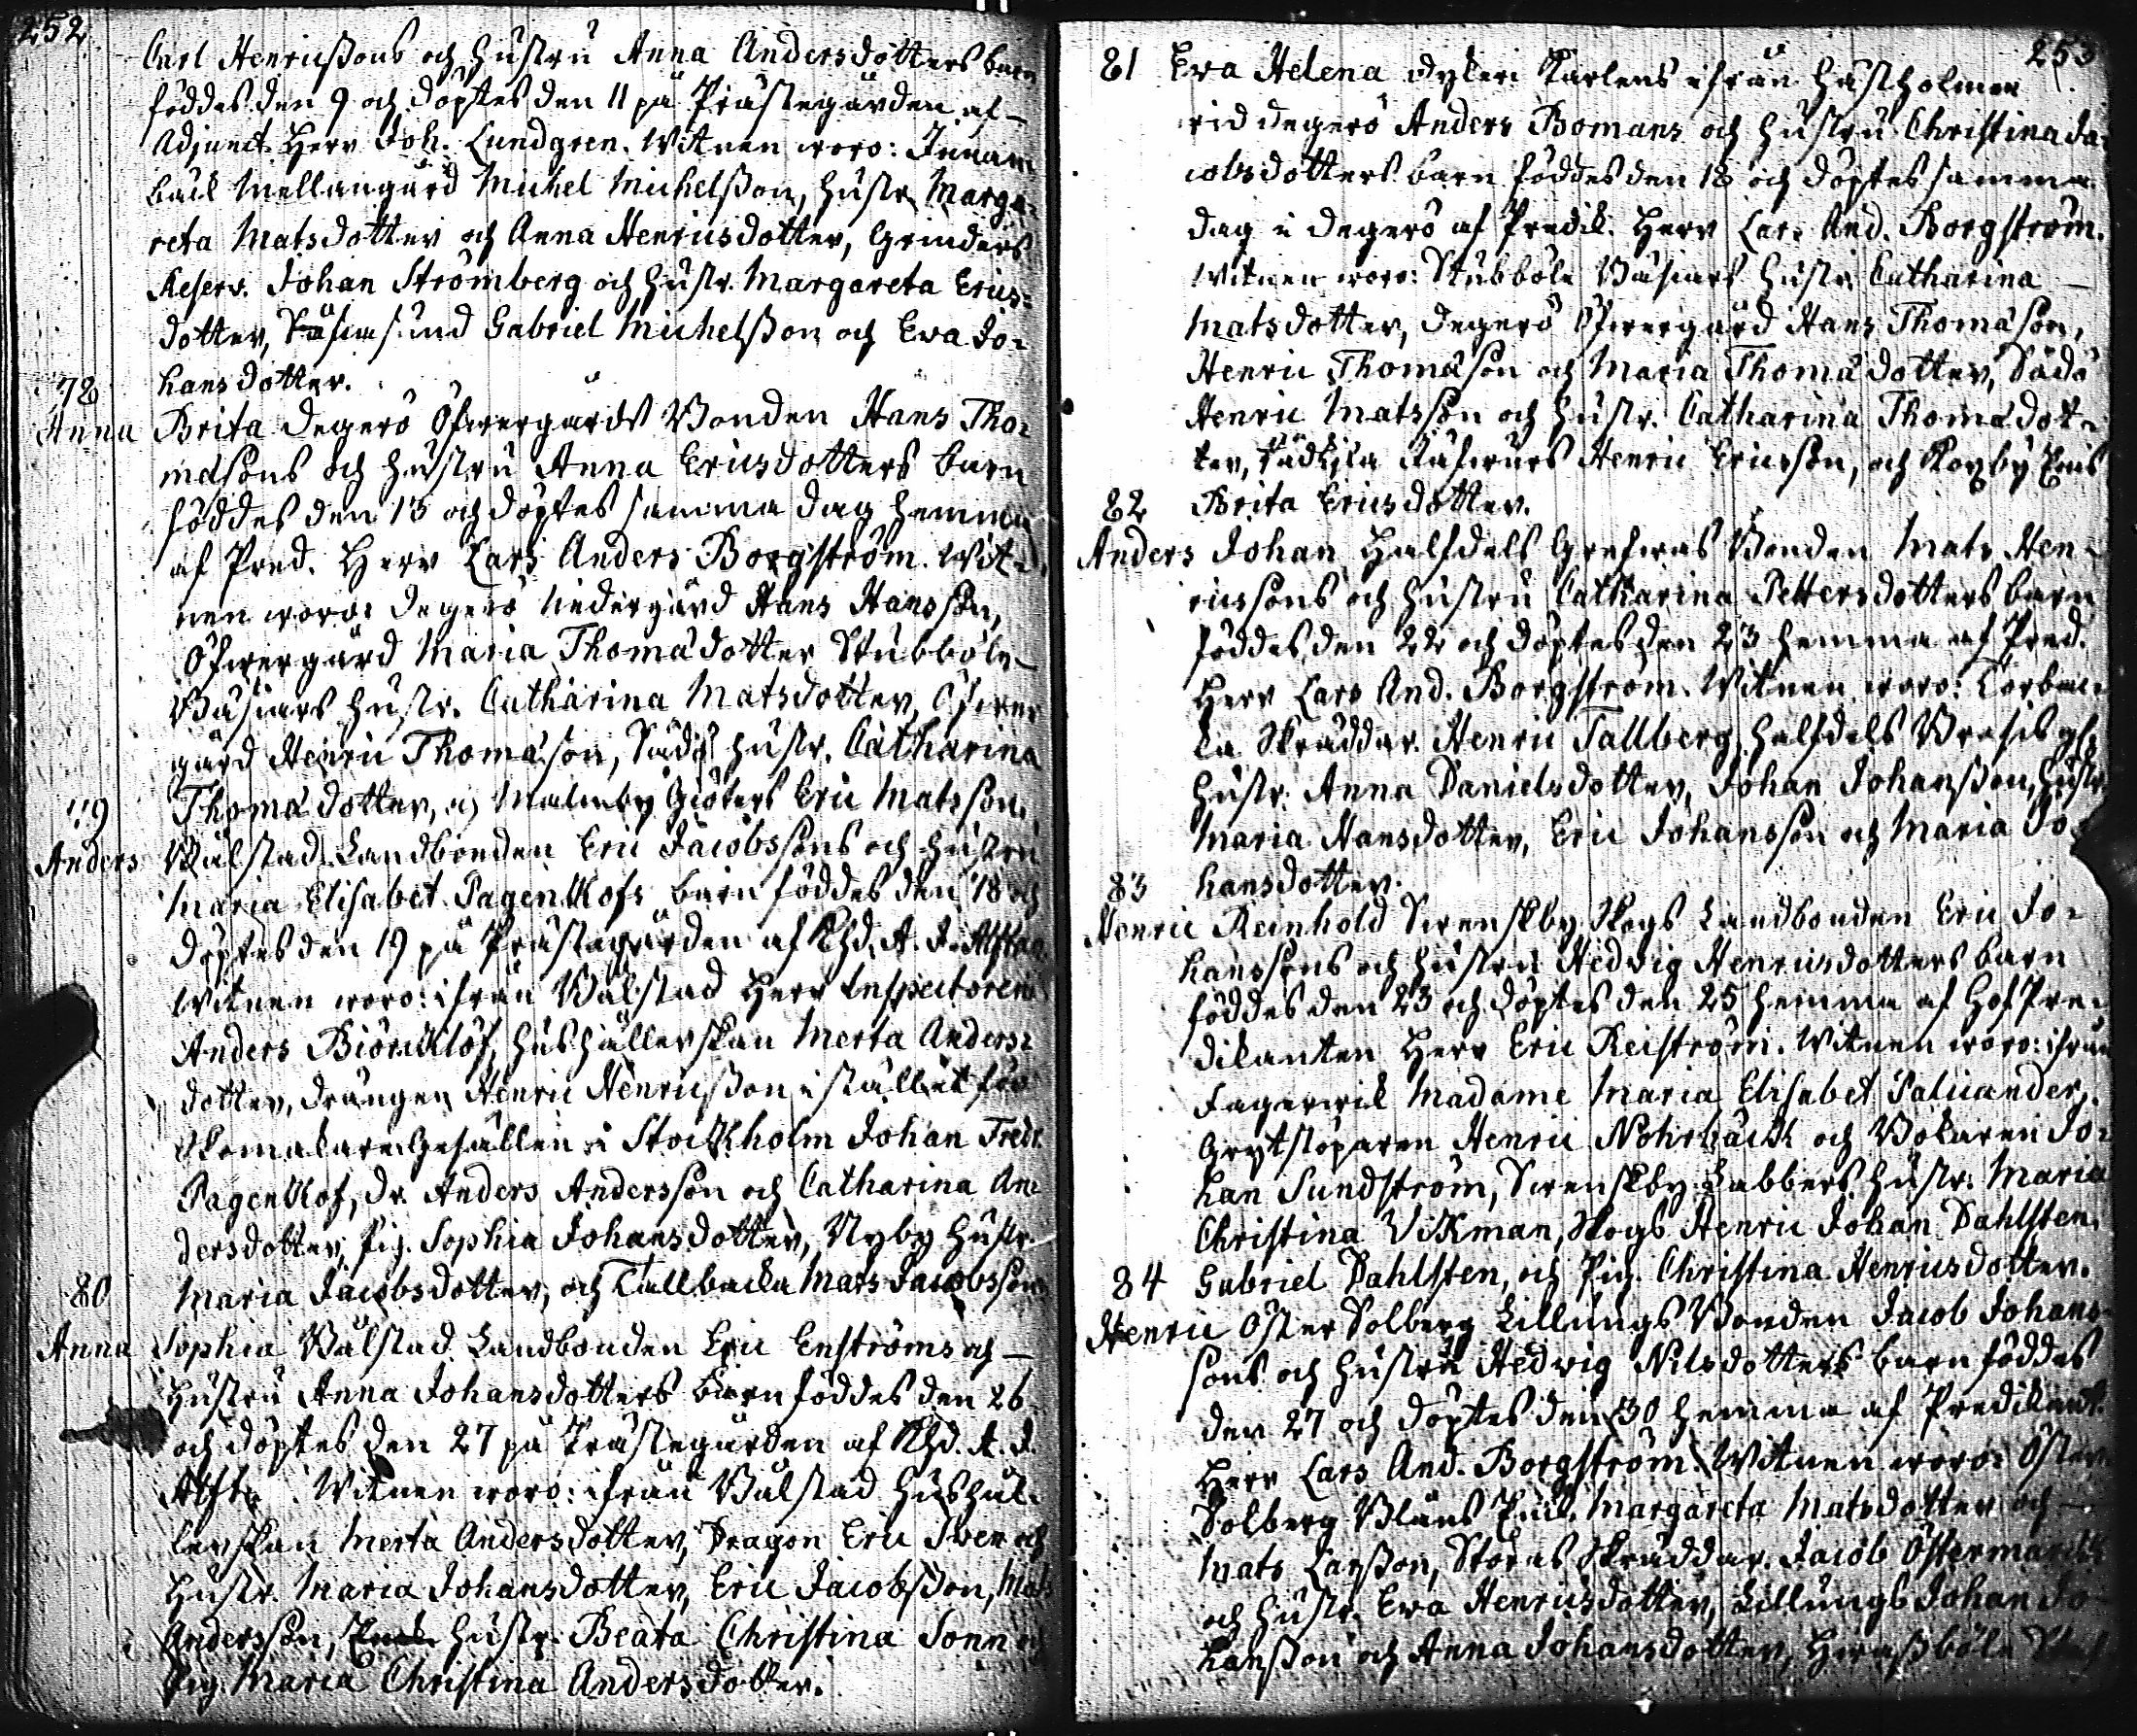 252
Carl Henricßons och hustru Anna Andersdotters barn
föddes den 9 och döptes den 11 på Prästegården af
Adjunct Herr Joh. Lundgren. Witnen woro:
back Mellangård Michel Michelsßon, hustr. Marga-
reta Matsdotter och Anna Henricsdotter, Grinders
Reserv. Johan Strömberg och hustr. Margareta Erics-
dotter, Gabriel Michelsßon och Ewa Jo-
hansdotter.
78
Anna Brita Degerö Öfwergårds Bonden Hans Tho-
mæsons och hustru Anna Ericsdotters barn
föddes den 13 och döptes samma dag hemma
af Pred. Herr Lars Anders Borgström. Wit-
nen woro: Degerö Nedergård Hans Hansson,
Öfwergård Maria Thomædotter Stubböle
hustr. Catharina Matsdotter, Öfwer
gård Henric Thomæson, Sådö hustr. Catharina
Thomædotter, och Malmby Eric Matsson.
79
Anders Bålstad Landbonden Eric Jacobssons och hustru
Maria Elisabet Pagenkofs barn föddes den 18 och
döptes den 19 på Prästegården af Khd. A. J.
Witnen woro: ifrån Bålstad Herr Inspectoren
Anders Biörcklöf, hushållerskan Merta Anders-
dotter, drängen Henric Henricßon i stället för
Skomakare Gesällen i Stockholm Johan Fredr.
Pagenkof, Dr. Anders Andersson och Catharina An-
dersdotter, Pig. Sophia Johansdotter, Nyby hustr.
Maria Jacobsdotter, och Tallbacka Mats Jacobsson
80
Anna Sophia Bålstad Landbonden Eric Enströms och
hustru Anna Johansdotters barn föddes den 26
och döptes den 27 på Prästegården af Khd. A. J.
Witnen woro: ifrån Bålstad hushål-
lerskan Merta Andersdotter, Dragon Eric Swen och
hustr. Maria Johansdotter, Eric Jacobßon, Mats
Andersson, hustr. Beata Christina Sonn och
Pig. Maria Christina Andersdotter.
253
81 Ewa Helena ifrån Hästholmen
wid Degerö Anders Bomans och hustru Christina Ja-
cobsdotters barn föddes den 18 och döptes samma
dag i Degerö af Predik. Herr Lars And. Borgström.
Witnen woro: Stubböle hustr. Catharina
Matsdotter, Degerö Öfwergård Hans Thomæson,
Henric Thomæson och Maria Thomædotter, Sådö
Henric Matsson och hustr. Catharina Thomædot-
ter, Henric Ericsson, och
Brita Ericsdotter.
82
Anders Johan Halfdels Grefwas Bonden Mats Hen-
ricssons och hustru Catharina Pettersdotters barn
föddes den 22 och döptes den 23 hemma af Pred.
Herr Lars And. Borgström. Witnen woro:
la Skräddar. Henric Tallberg, Halfdels
hustr. Anna Danielsdotter, Johan Johanßon, hustr.
Maria Hansdotter, Eric Johansson och Maria Jo-
hansdotter.
83
Henric Reinhold Swenskby Skogs Landbonden Eric Jo-
hanssons och hustru Hedvig Henricsdotters barn
föddes den 23 och döptes den 25 hemma af Hof Pre-
dikanten Herr Eric Reiström. Witnen woro: ifrån
Fagerwik Madame Maria Elisabet
Grytstöparen Henric Nohrbäck och Jo-
han Sundström, Swenskby Labbers hustr. Maria
Christina Vikman, Skogs Henric Johan Dahlsten,
Gabriel Dahlsten, och Pig. Christina Henricsdotter.
84
Henric Öster Solberg Lillungs Bonden Jacob Johans-
sons och hustru Hedvig Nilsdotters barn föddes
den 27 och döptes den 30 hemma af Predikant.
Herr Lars And. Borgström. Witnen woro: Öster
Solberg Margareta Matsdotter och
Mats Larsson, Skräddar. Jacob Östermarck
och hustr. Ewa Henricsdotter, Lillungs Johan Jo-
hanßon och Anna Johansdotter,